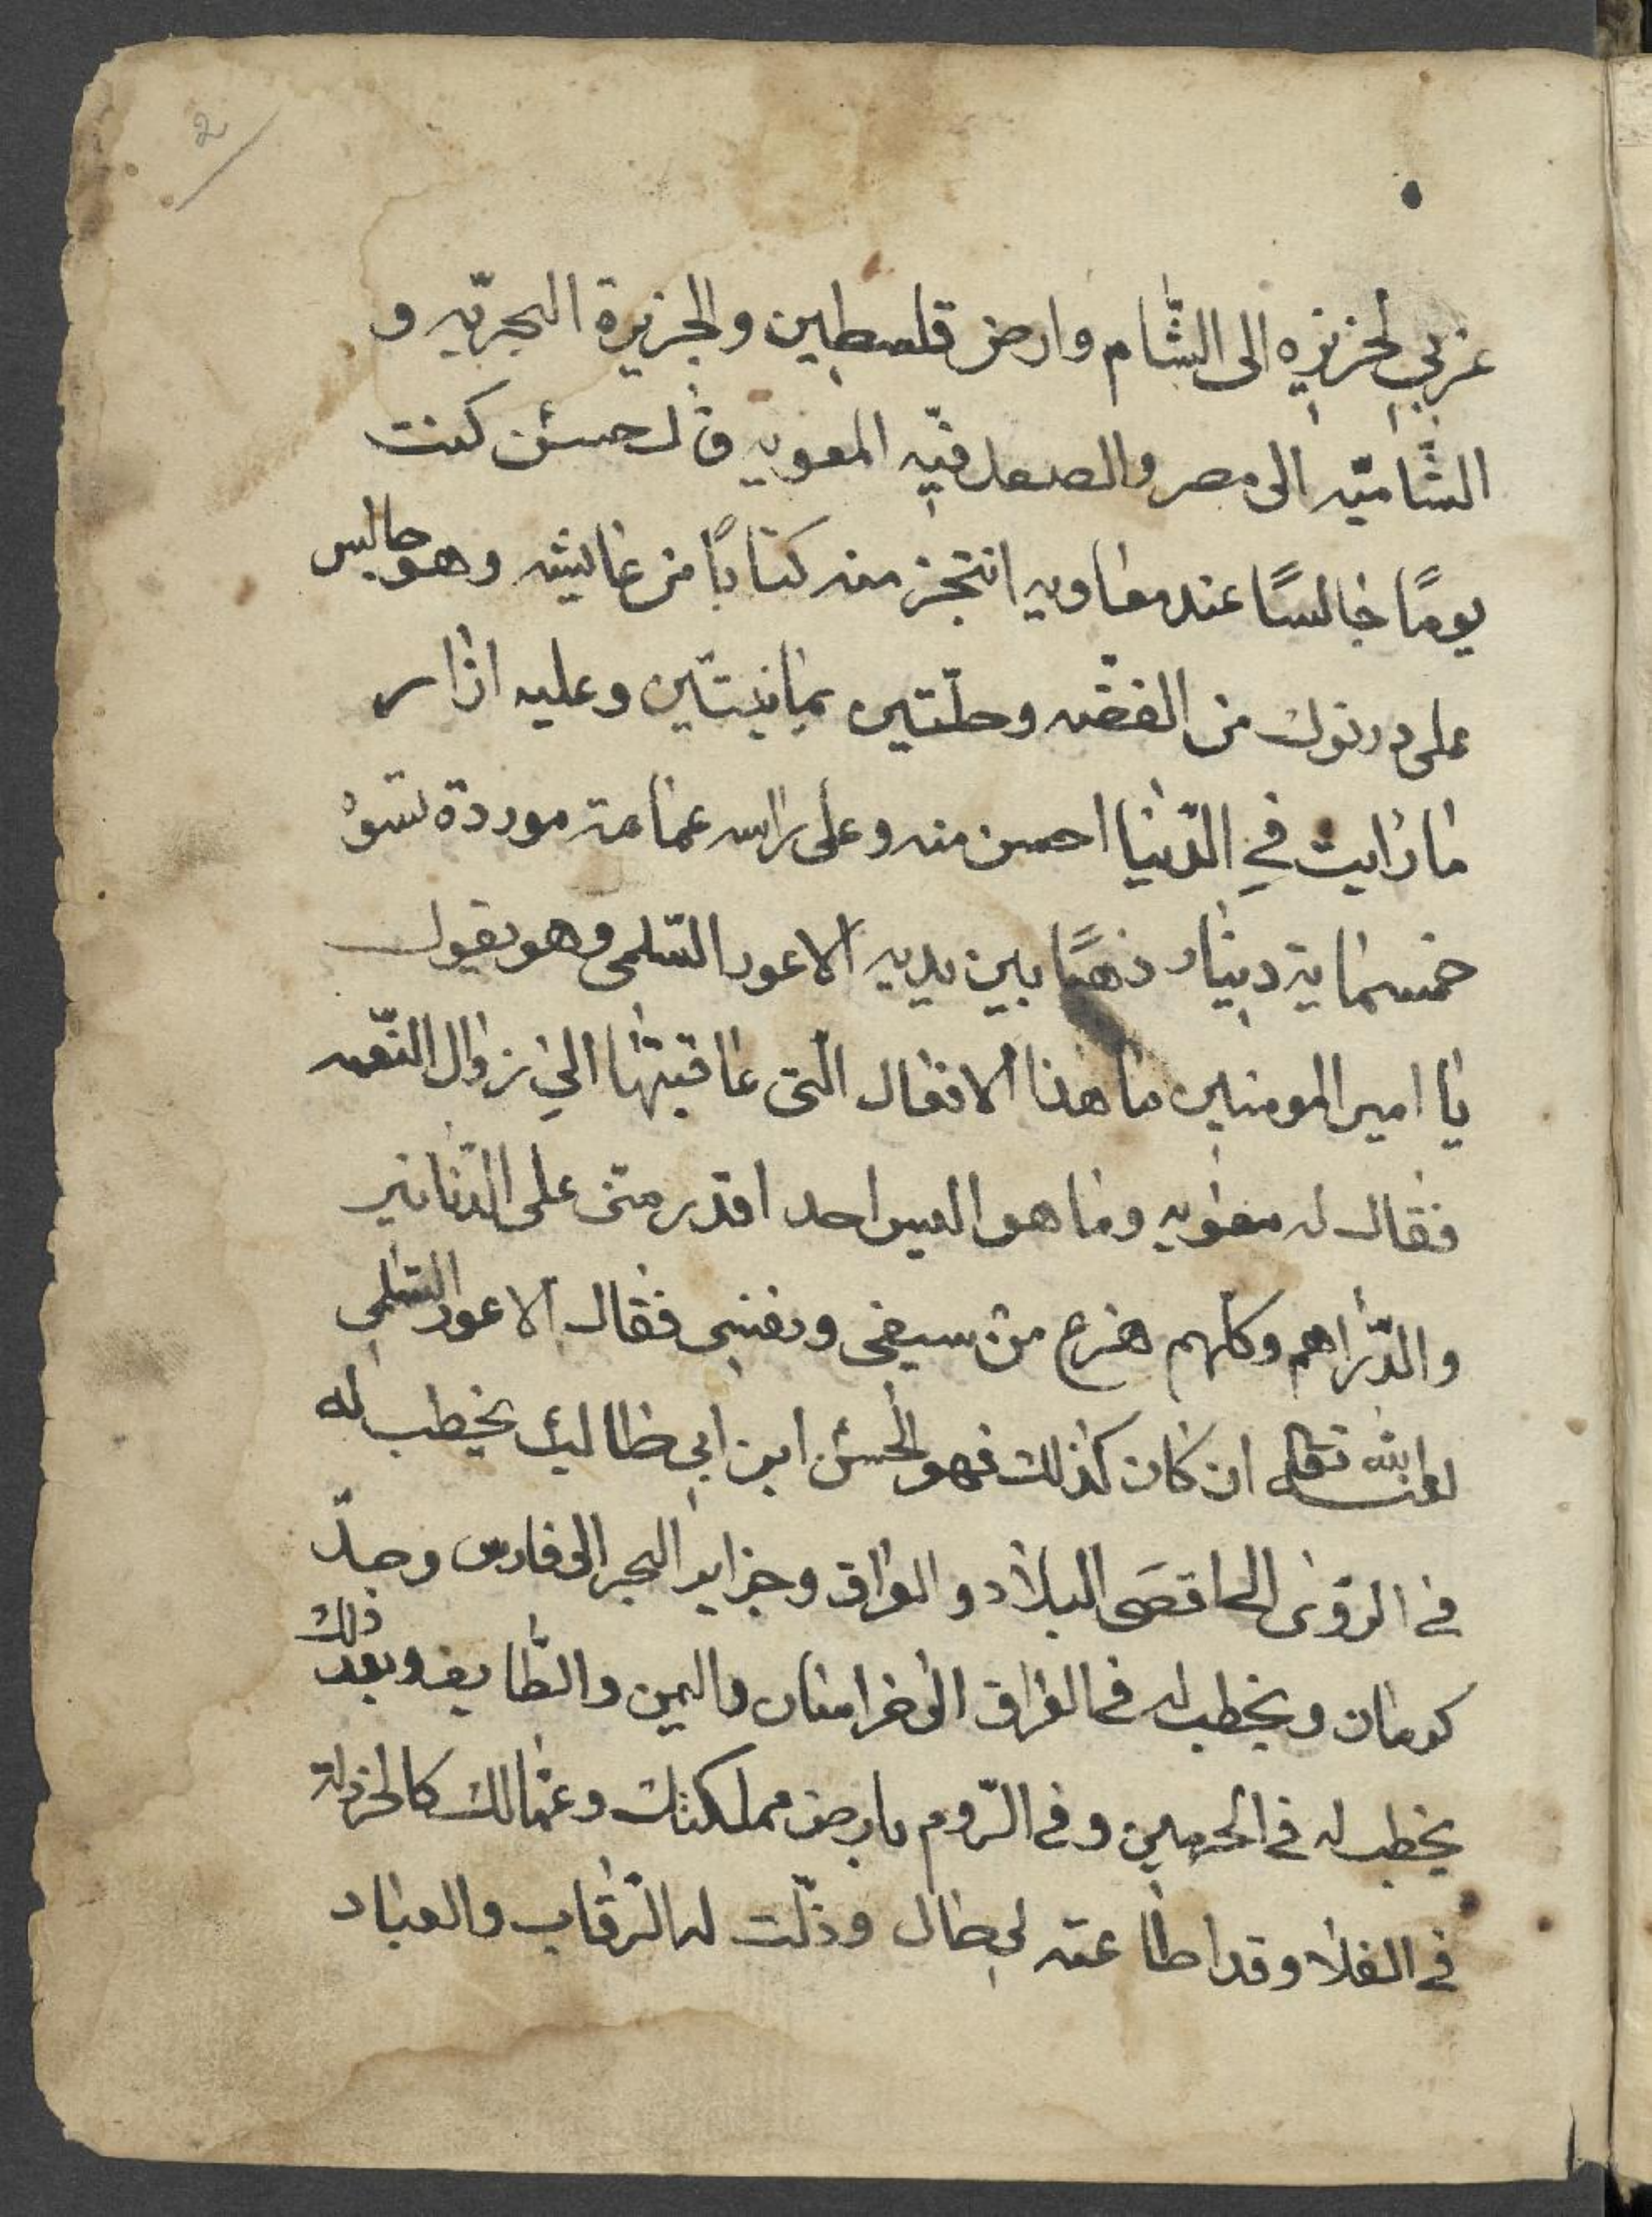 2
غربي الجزيره الى الشام وارض فلسطين والجزيرة البحريّه و
الشاميّه الى مصر والصعل فيه المعويه قال حسن كنت
يومًا جالسًا عند معاويه انتجز منه كتابًا من عايشه وهو جالس
على درنوك من الفضه وحلّتين يمانيتين وعليه ازار
ما رايت في الدّنيا احسن منه وعلى راسه عمامة موردة تسوا
خمسماية دينار ذهبًا بين يديه الاعور السّلمى وهو يقول
يا امير المومنين ما هذا الافعال التى عاقبتها الي زوال النّعمه
فقال له معويه وما هو اليس احد اقدر منى على الدنانير
والدّراهم وكلهم هزع من سيفى ونقنى فقال الاعور السّلمي
لعنه الله تعالى ان كان كذلك فهو الحسن ابن ابي طالب يخطب له
في القرى الى اقصى البلاد والعراق وجزاير البحر الى فارس وجلّ
كرمان ويخطب له في العراق الى خراسان واليمن والطّايف وبعد ذلك
يخطب له في الحرمين وفي الرّوم بارض مملكتك وعمالك كالخردلة
في الفلا وقد اطاعته لبطال وذلّت له الرّقاب والعباد